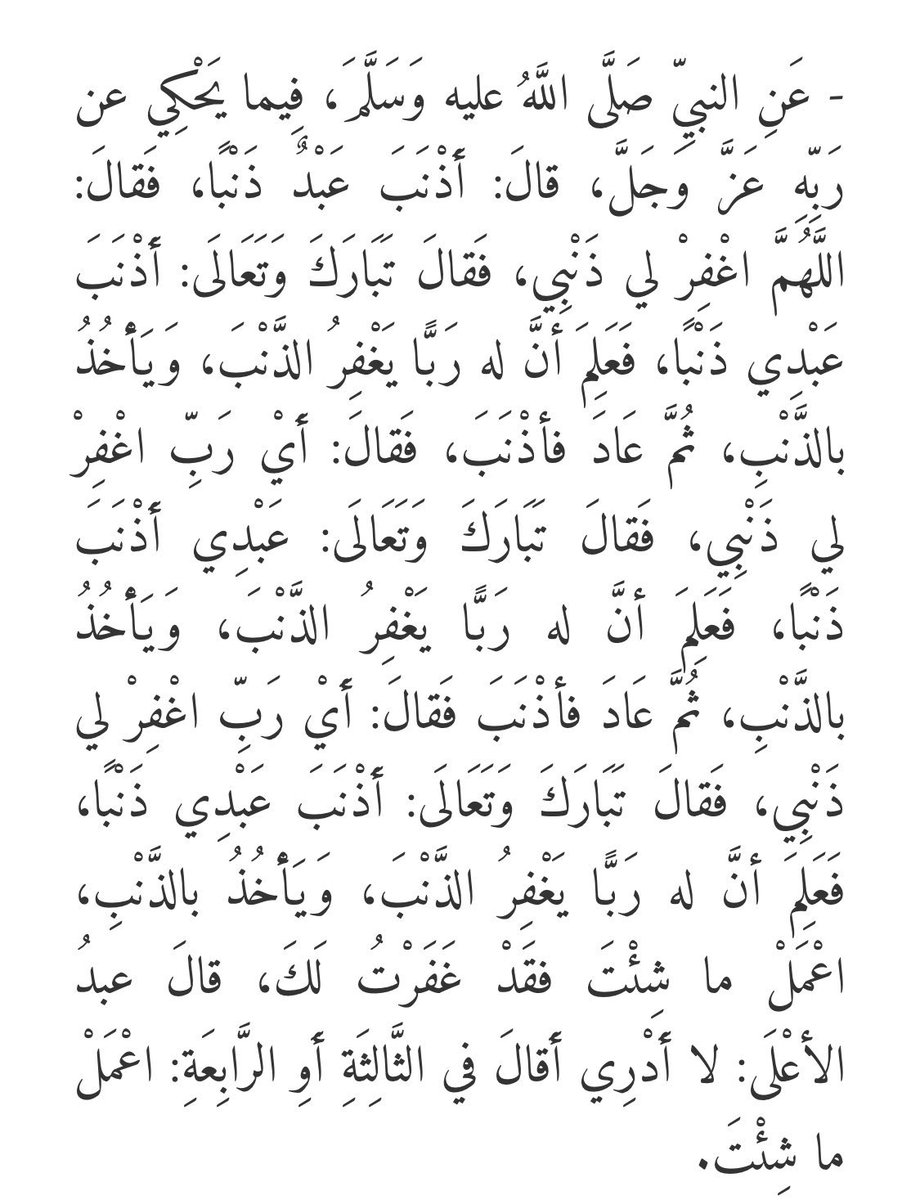 - عَنِ النبيِّ صَلَّى اللَّهُ عليه وَسَلَّمَ، فِيما يَحْكِي عن
رَبِّهِ عَزَّ وَجَلَّ، قالَ: أَذْنَبَ عَبْدٌ ذَنْبًا، فَقالَ:
اللَّهُمَّ اغْفِرْ لي ذَنْبِي، فَقالَ تَبَارَكَ وَتَعَالَى: أَذْنَبَ
عَبْدِي ذَنْبًا، فَعَلِمَ أنَّ له رَبًّا يَغْفِرُ الذَّنْبَ، وَيَأْخُذُ
بالذَّنْبِ، ثُمَّ عَادَ فأذْنَبَ، فَقالَ: أَيْ رَبِّ اغْفِرْ
لي ذَنْبِي، فَقالَ تَبَارَكَ وَتَعَالَى: عَبْدِي أَذْنَبَ
ذَنْبًا، فَعَلِمَ أنَّ له رَبًّا يَغْفِرُ الذَّنْبَ، وَيَأْخُذُ
بالذَّنْبِ، ثُمَّ عَادَ فأذْنَبَ فَقالَ: أَيْ رَبِّ اغْفِرْ لي
ذَنْبِي، فَقالَ تَبَارَكَ وَتَعَالَى: أَذْنَبَ عَبْدِي ذَنْبًا،
فَعَلِمَ أنَّ له رَبًّا يَغْفِرُ الذَّنْبَ، وَيَأْخُذُ بالذَّنْبِ،
اعْمَلْ ما شِئْتَ فقَدْ غَفَرْتُ لَكَ، قالَ عبدُ
الأعْلَى: لا أَدْرِي أَقالَ في الثَّالِثَةِ أَوِ الرَّابِعَةِ: اعْمَلْ
ما شِئْتَ.